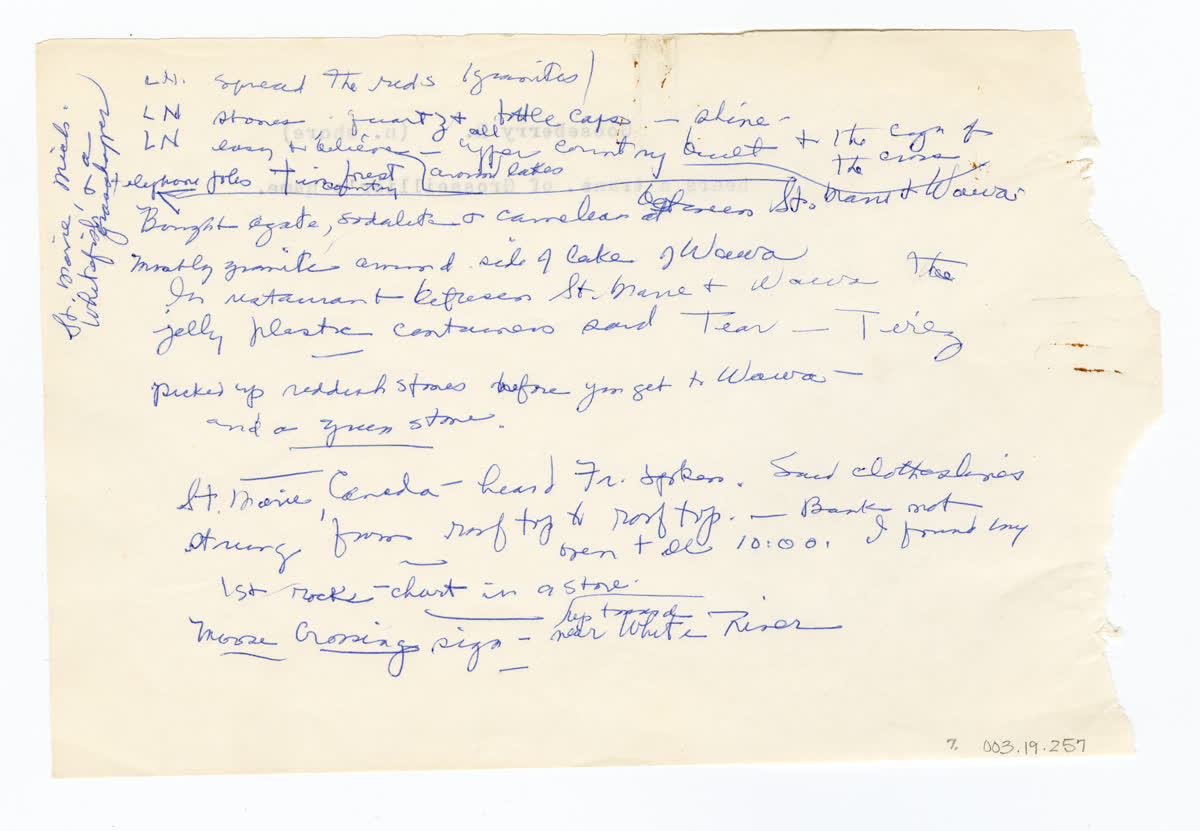 LN. spread the reds (granites)
LN stones - quartz & bottle caps - shine -
LN easy to believe - all upper country built to the sign of the cross
telephone poles thin forest country around lakes the
Bought agate, sodalite & cameleas between St. Marie & Wawa
mostly granite around side of lake of Wawa
In restaurant between St. Marie & Wawa the
jelly plastic containers said Tear - Tirez
picked up reddish stones before you get to Wawa -
and a green stone.
St. Marie, Canada - heard Fr. spoken. Said clotheslines
strung from roof top to roof top. - Banks not
open til 10:00. I found my
1st rocks-chart in a store.
Moose Crossing sign - up toward
near White River
St. Marie, Mich:
Whitefish, & a
grasshopper
Gooseberry (n. shore)
of Groseilliers' name.
7. 003.19.257